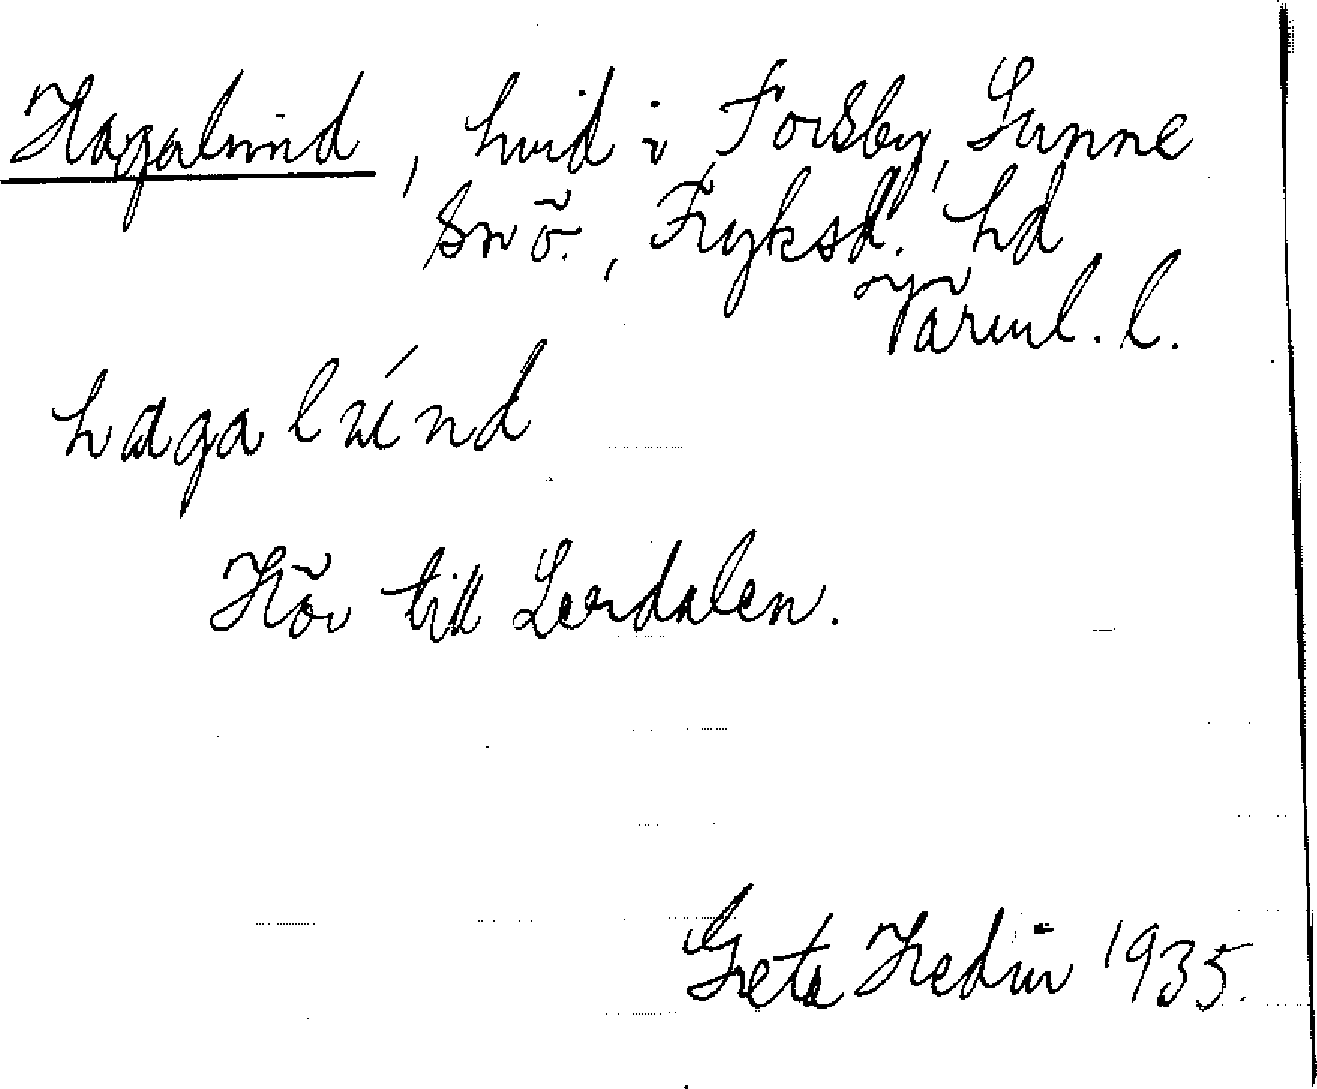 Hagalund, hmd i Forsby, Sunne
sn ö., Fryksd. hd
Värml. l.
hagalúnd
Hör till Lerdalen.
Greta Hedin 1935.